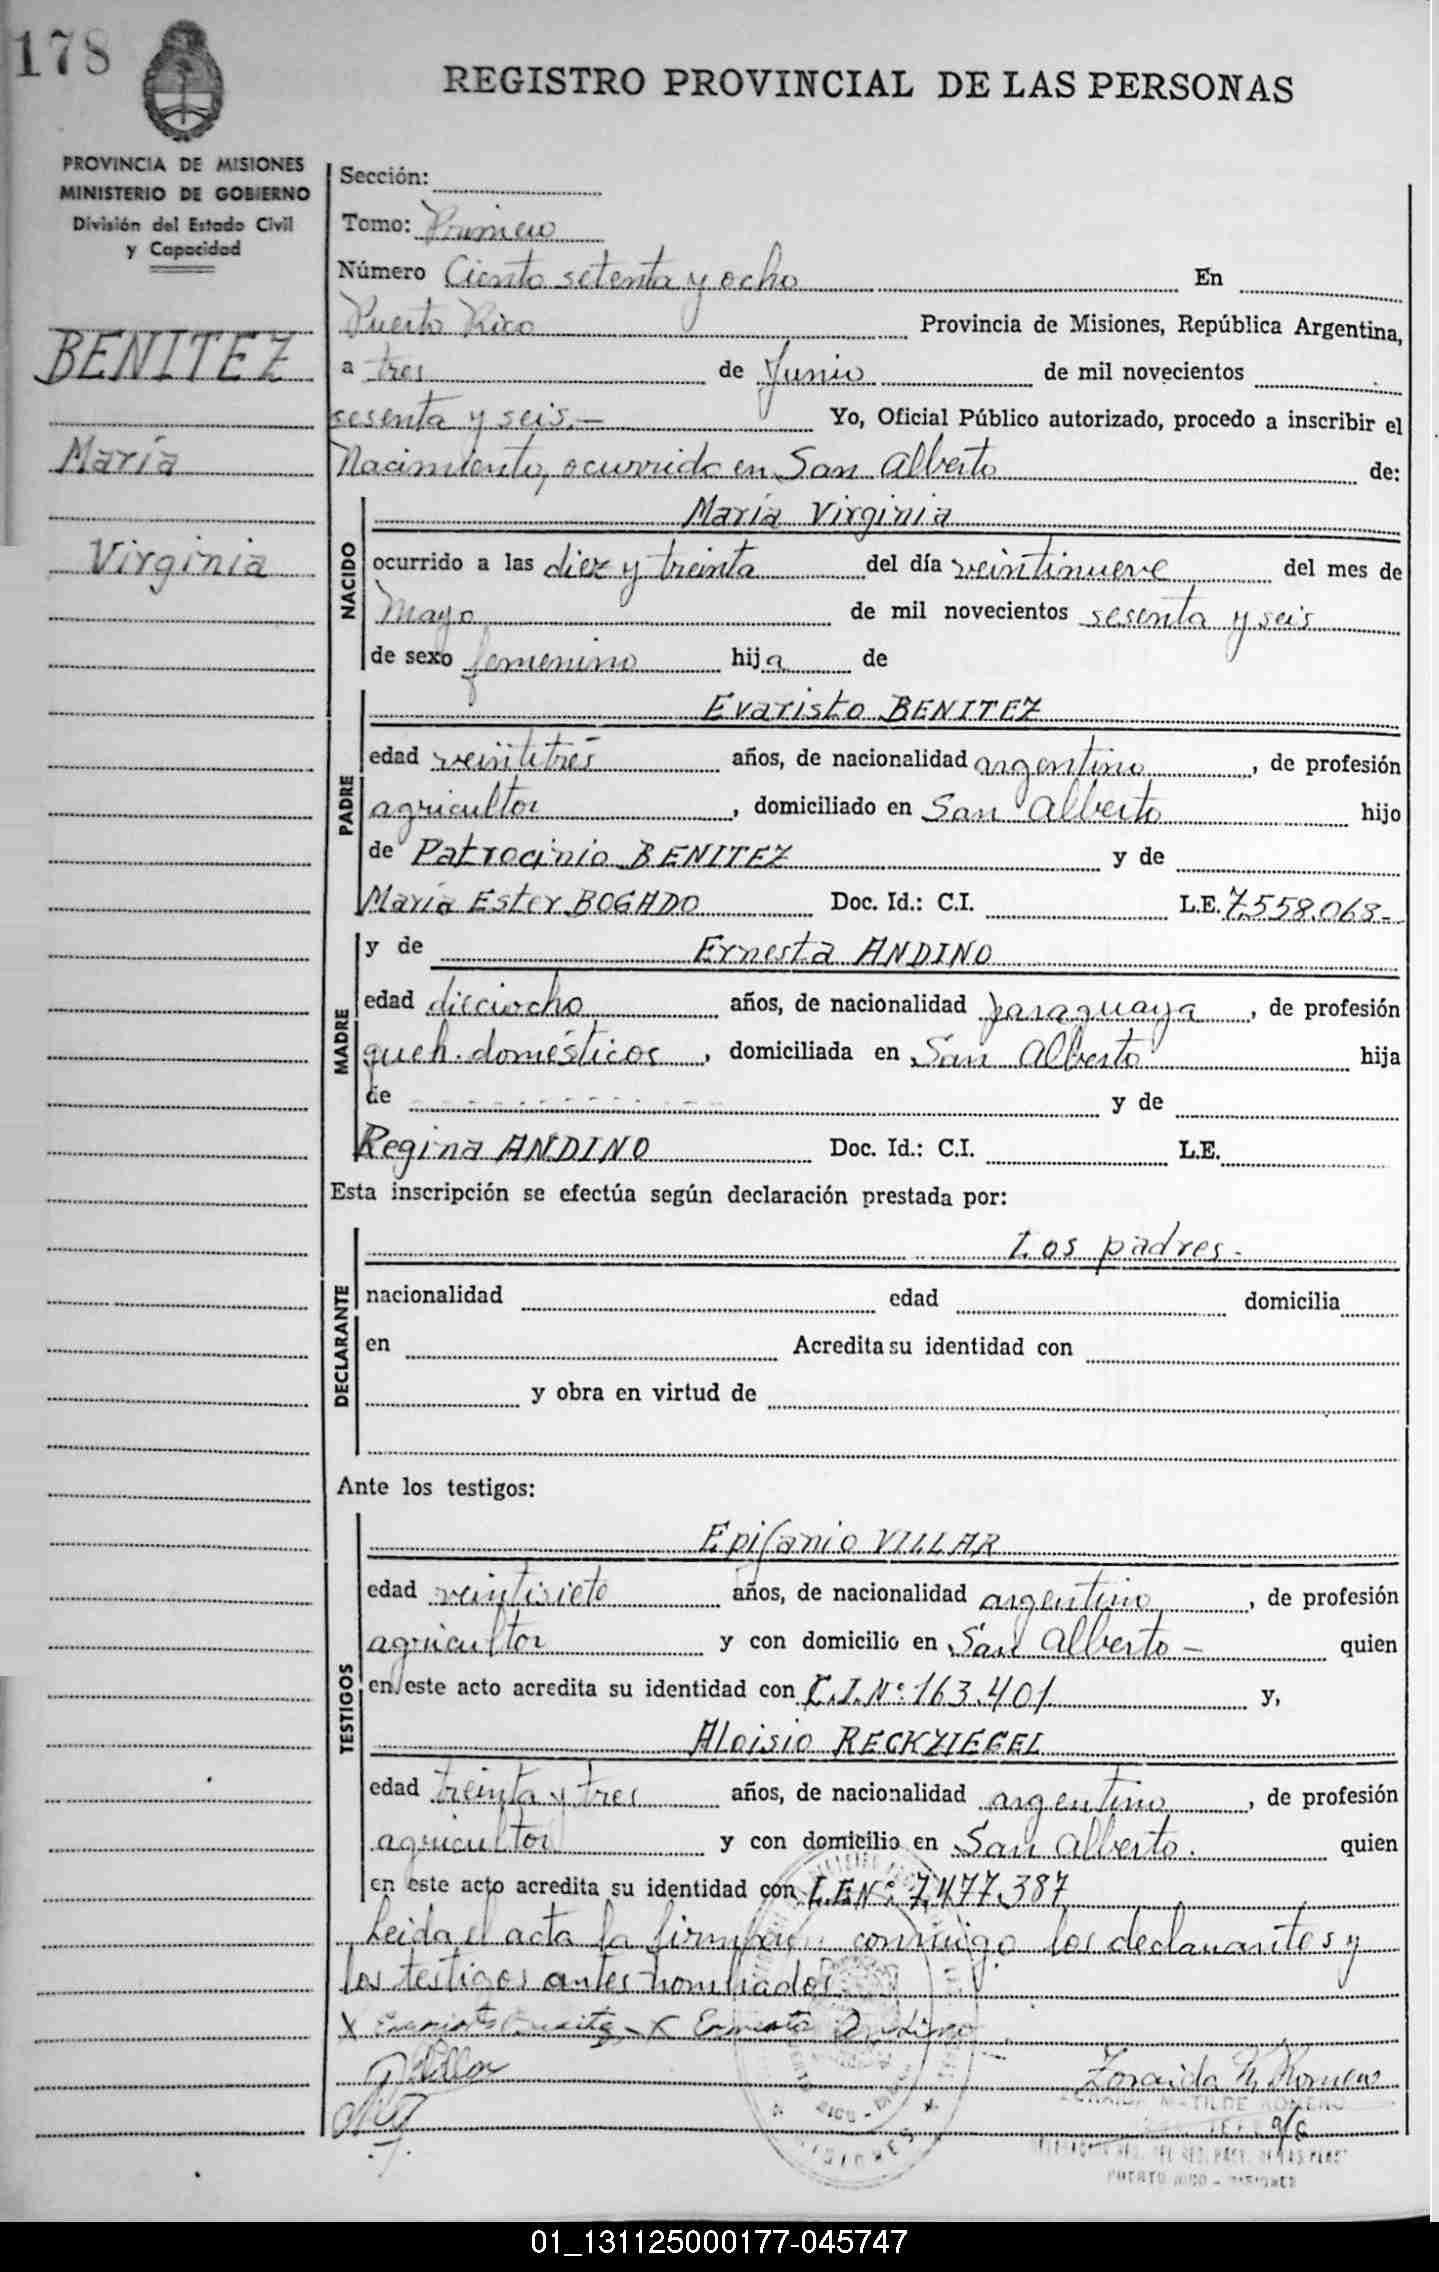 178
REGISTRO PROVINCIAL DE LAS PERSONAS
PROVINCIA DE MISIONES
MINISTERIO DE GOBIERNO
División del Estado Civil
y Capacidad
BENITEZ
María
Virginia
Sección:
Tomo: Primero
Número Ciento setenta y ocho En
Puerto Rico Provincia de Misiones, República Argentina,
a tres de Junio de mil novecientos
sesenta y seis.— Yo, Oficial Público autorizado, procedo a inscribir el
Nacimiento, ocurrido en San Alberto de:
NACIDO
María Virginia
ocurrido a las diez y treinta del día veintinueve del mes de
Mayo de mil novecientos sesenta y seis
de sexo femenino hija de
PADRE
Evaristo BENITEZ
edad veintitrés años, de nacionalidad argentino, de profesión
agricultor, domiciliado en San Alberto hijo
de Patrocinio BENITEZ y de
María Ester BOGADO Doc. Id.: C.I. L.E. 7.558.068-
MADRE
y de Ernesta ANDINO
edad dieciocho años, de nacionalidad paraguaya, de profesión
queh. domésticos, domiciliada en San Alberto hija
de y de
Regina ANDINO Doc. Id.: C.I. L.E.
Esta inscripción se efectúa según declaración prestada por:
DECLARANTE
Los padres.-
nacionalidad edad domicilia
en Acredita su identidad con
y obra en virtud de
Ante los testigos:
TESTIGOS
Epifanio VILLAR
edad veintisiete años, de nacionalidad argentino, de profesión
agricultor y con domicilio en San Alberto - quien
en este acto acredita su identidad con C.I.Nº:163.401 y,
Aloisio RECKZIEGEL
edad treinta y tres años, de nacionalidad argentino, de profesión
agricultor y con domicilio en San Alberto. quien
en este acto acredita su identidad con L.E.Nº: 7.477.387
Leida el acta la firman conmigo los declarantes y
los testigos antes nombrados
X Evaristo Benitez X Ernesta Andino
Zoraida M. Romero
ZORAIDA MATILDE ROMERO
PUERTO RICO - MISIONES
01_131125000177-045747